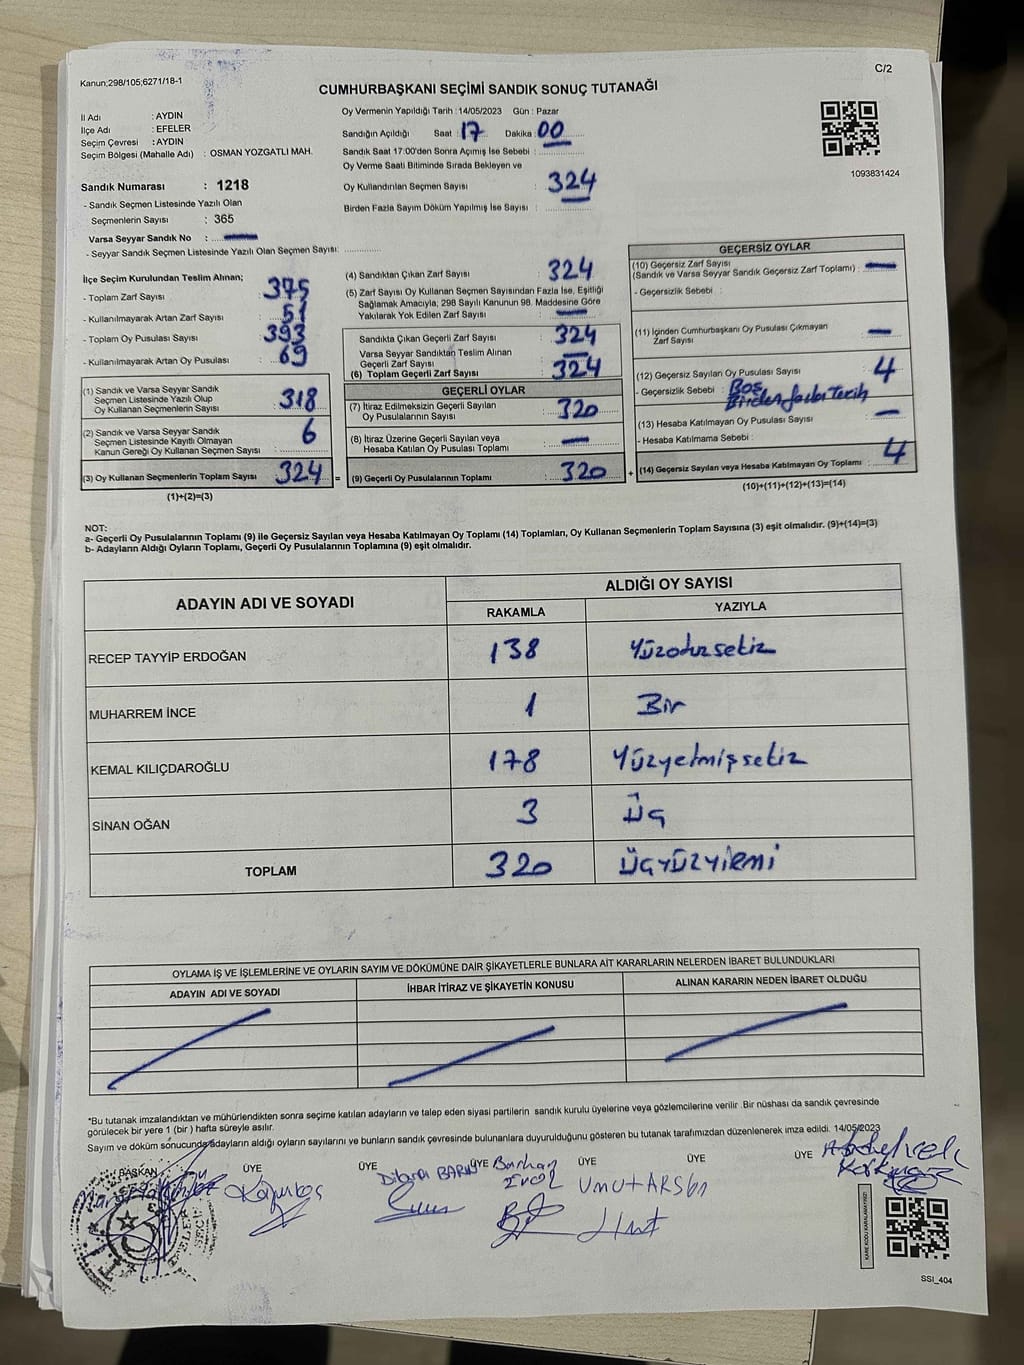 Kanun;298/105;6271/18-1
C/2
CUMHURBAŞKANI SEÇİMİ SANDIK SONUÇ TUTANAĞI
İl Adı : AYDIN
İlçe Adı : EFELER
Seçim Çevresi : AYDIN
Seçim Bölgesi (Mahalle Adı) : OSMAN YOZGATLI MAH.
Sandık Numarası : 1218
- Sandık Seçmen Listesinde Yazılı Olan
Seçmenlerin Sayısı : 365
Varsa Seyyar Sandık No :
- Seyyar Sandık Seçmen Listesinde Yazılı Olan Seçmen Sayısı:
Oy Vermenin Yapıldığı Tarih : 14/05/2023 Gün : Pazar
Sandığın Açıldığı Saat : 17 Dakika : 00
Sandık Saat 17:00'den Sonra Açımış İse Sebebi :
Oy Verme Saati Bitiminde Sırada Bekleyen ve
Oy Kullandırılan Seçmen Sayısı : 324
Birden Fazla Sayım Döküm Yapılmış İse Sayısı :
1093831424
İlçe Seçim Kurulundan Teslim Alınan;
- Toplam Zarf Sayısı : 375
- Kullanılmayarak Artan Zarf Sayısı : 51
- Toplam Oy Pusulası Sayısı : 393
- Kullanılmayarak Artan Oy Pusulası : 69
(1) Sandık ve Varsa Seyyar Sandık
Seçmen Listesinde Yazılı Olup
Oy Kullanan Seçmenlerin Sayısı : 318
(2) Sandık ve Varsa Seyyar Sandık
Seçmen Listesinde Kayıtlı Olmayan
Kanun Gereği Oy Kullanan Seçmen Sayısı : 6
(3) Oy Kullanan Seçmenlerin Toplam Sayısı : 324 =
(1)+(2)=(3)
(4) Sandıktan Çıkan Zarf Sayısı : 324
(5) Zarf Sayısı Oy Kullanan Seçmen Sayısından Fazla İse, Eşitliği
Sağlamak Amacıyla, 298 Sayılı Kanunun 98. Maddesine Göre
Yakılarak Yok Edilen Zarf Sayısı :
Sandıkta Çıkan Geçerli Zarf Sayısı : 324
Varsa Seyyar Sandıktan Teslim Alınan
Geçerli Zarf Sayısı :
(6) Toplam Geçerli Zarf Sayısı : 324
GEÇERLİ OYLAR
(7) İtiraz Edilmeksizin Geçerli Sayılan
Oy Pusulalarının Sayısı : 320
(8) İtiraz Üzerine Geçerli Sayılan veya
Hesaba Katılan Oy Pusulası Toplamı :
(9) Geçerli Oy Pusulalarının Toplamı : 320 +
GEÇERSİZ OYLAR
(10) Geçersiz Zarf Sayısı
(Sandık ve Varsa Seyyar Sandık Geçersiz Zarf Toplamı) :
- Geçersizlik Sebebi :
(11) İçinden Cumhurbaşkanı Oy Pusulası Çıkmayan
Zarf Sayısı :
(12) Geçersiz Sayılan Oy Pusulası Sayısı : 4
- Geçersizlik Sebebi : Boş
Birden fazla Tercih
(13) Hesaba Katılmayan Oy Pusulası Sayısı :
- Hesaba Katılmama Sebebi :
(14) Geçersiz Sayılan veya Hesaba Katılmayan Oy Toplamı : 4
(10)+(11)+(12)+(13)=(14)
NOT:
a- Geçerli Oy Pusulalarının Toplamı (9) ile Geçersiz Sayılan veya Hesaba Katılmayan Oy Toplamı (14) Toplamları, Oy Kullanan Seçmenlerin Toplam Sayısına (3) eşit olmalıdır. (9)+(14)=(3)
b- Adayların Aldığı Oyların Toplamı, Geçerli Oy Pusulalarının Toplamına (9) eşit olmalıdır.
ADAYIN ADI VE SOYADI
ALDIĞI OY SAYISI
RAKAMLA YAZIYLA
RECEP TAYYİP ERDOĞAN 138 Yüzotuzsekiz
MUHARREM İNCE 1 Bir
KEMAL KILIÇDAROĞLU 178 Yüzyetmişsekiz
SİNAN OĞAN 3 Üç
TOPLAM 320 Üçyüzyirmi
OYLAMA İŞ VE İŞLEMLERİNE VE OYLARIN SAYIM VE DÖKÜMÜNE DAİR ŞİKAYETLERLE BUNLARA AİT KARARLARIN NELERDEN İBARET BULUNDUKLARI
ADAYIN ADI VE SOYADI
İHBAR İTİRAZ VE ŞİKAYETİN KONUSU
ALINAN KARARIN NEDEN İBARET OLDUĞU
*Bu tutanak imzalandıktan ve mühürlendikten sonra seçime katılan adayların ve talep eden siyasi partilerin sandık kurulu üyelerine veya gözlemcilerine verilir .Bir nüshası da sandık çevresinde
görülecek bir yere 1 (bir ) hafta süreyle asılır.
Sayım ve döküm sonucunda adayların aldığı oyların sayılarını ve bunların sandık çevresinde bulunanlara duyurulduğunu gösteren bu tutanak tarafımızdan düzenlenerek imza edildi. 14/05/2023
BAŞKAN ÜYE ÜYE ÜYE ÜYE ÜYE ÜYE
Burhan
Umut ARSLN
KARE KODU KARALAMAYINIZ!
SSI_404